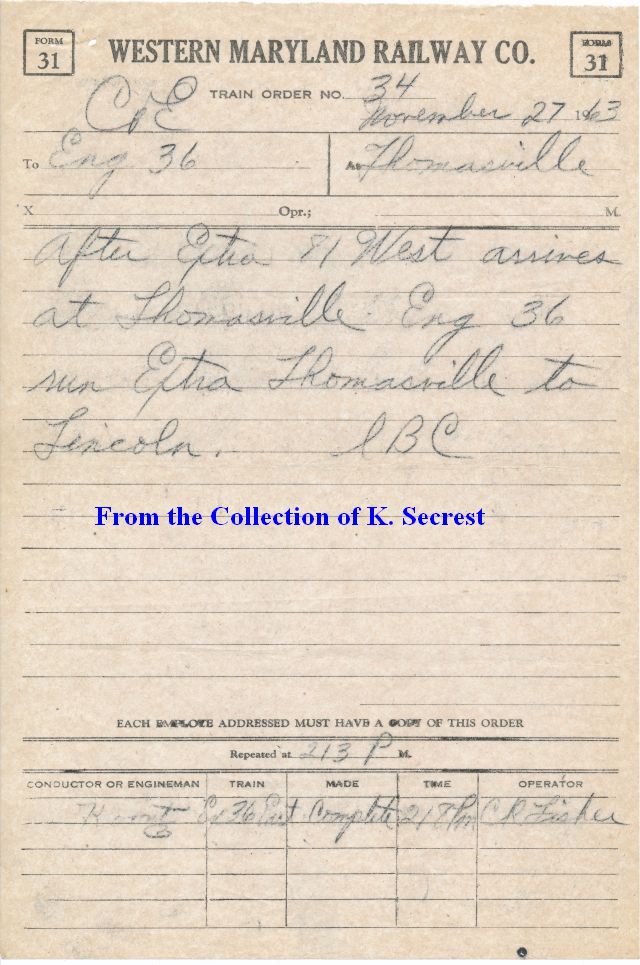 FORM 31
WESTERN MARYLAND RAILWAY CO.
FORM 31
TRAIN ORDER NO. 34
C&E
November 27 1963
To Eng 36
At Thomasville
X Opr.; M.
After Extra 81 West arrives
at Thomasville Eng 36
run Extra Thomasville to
Lincoln. LBC
From the Collection of K. Secrest
EACH EMPLOYE ADDRESSED MUST HAVE A COPY OF THIS ORDER
Repeated at 213 P M.
CONDUCTOR OR ENGINEMAN TRAIN MADE TIME OPERATOR
Koontz Ex 36 East Complete 218 Pm C R Fisher